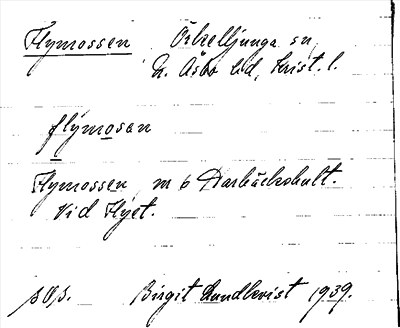 Flymossen Örkelljunga sn,
N. Åsbo hd, Krist. l.
flýmosan
Flymossen, m b Harbäckshult.
Vid Flyet.
s. 0. s.
Birgit Lundkvist 1939.